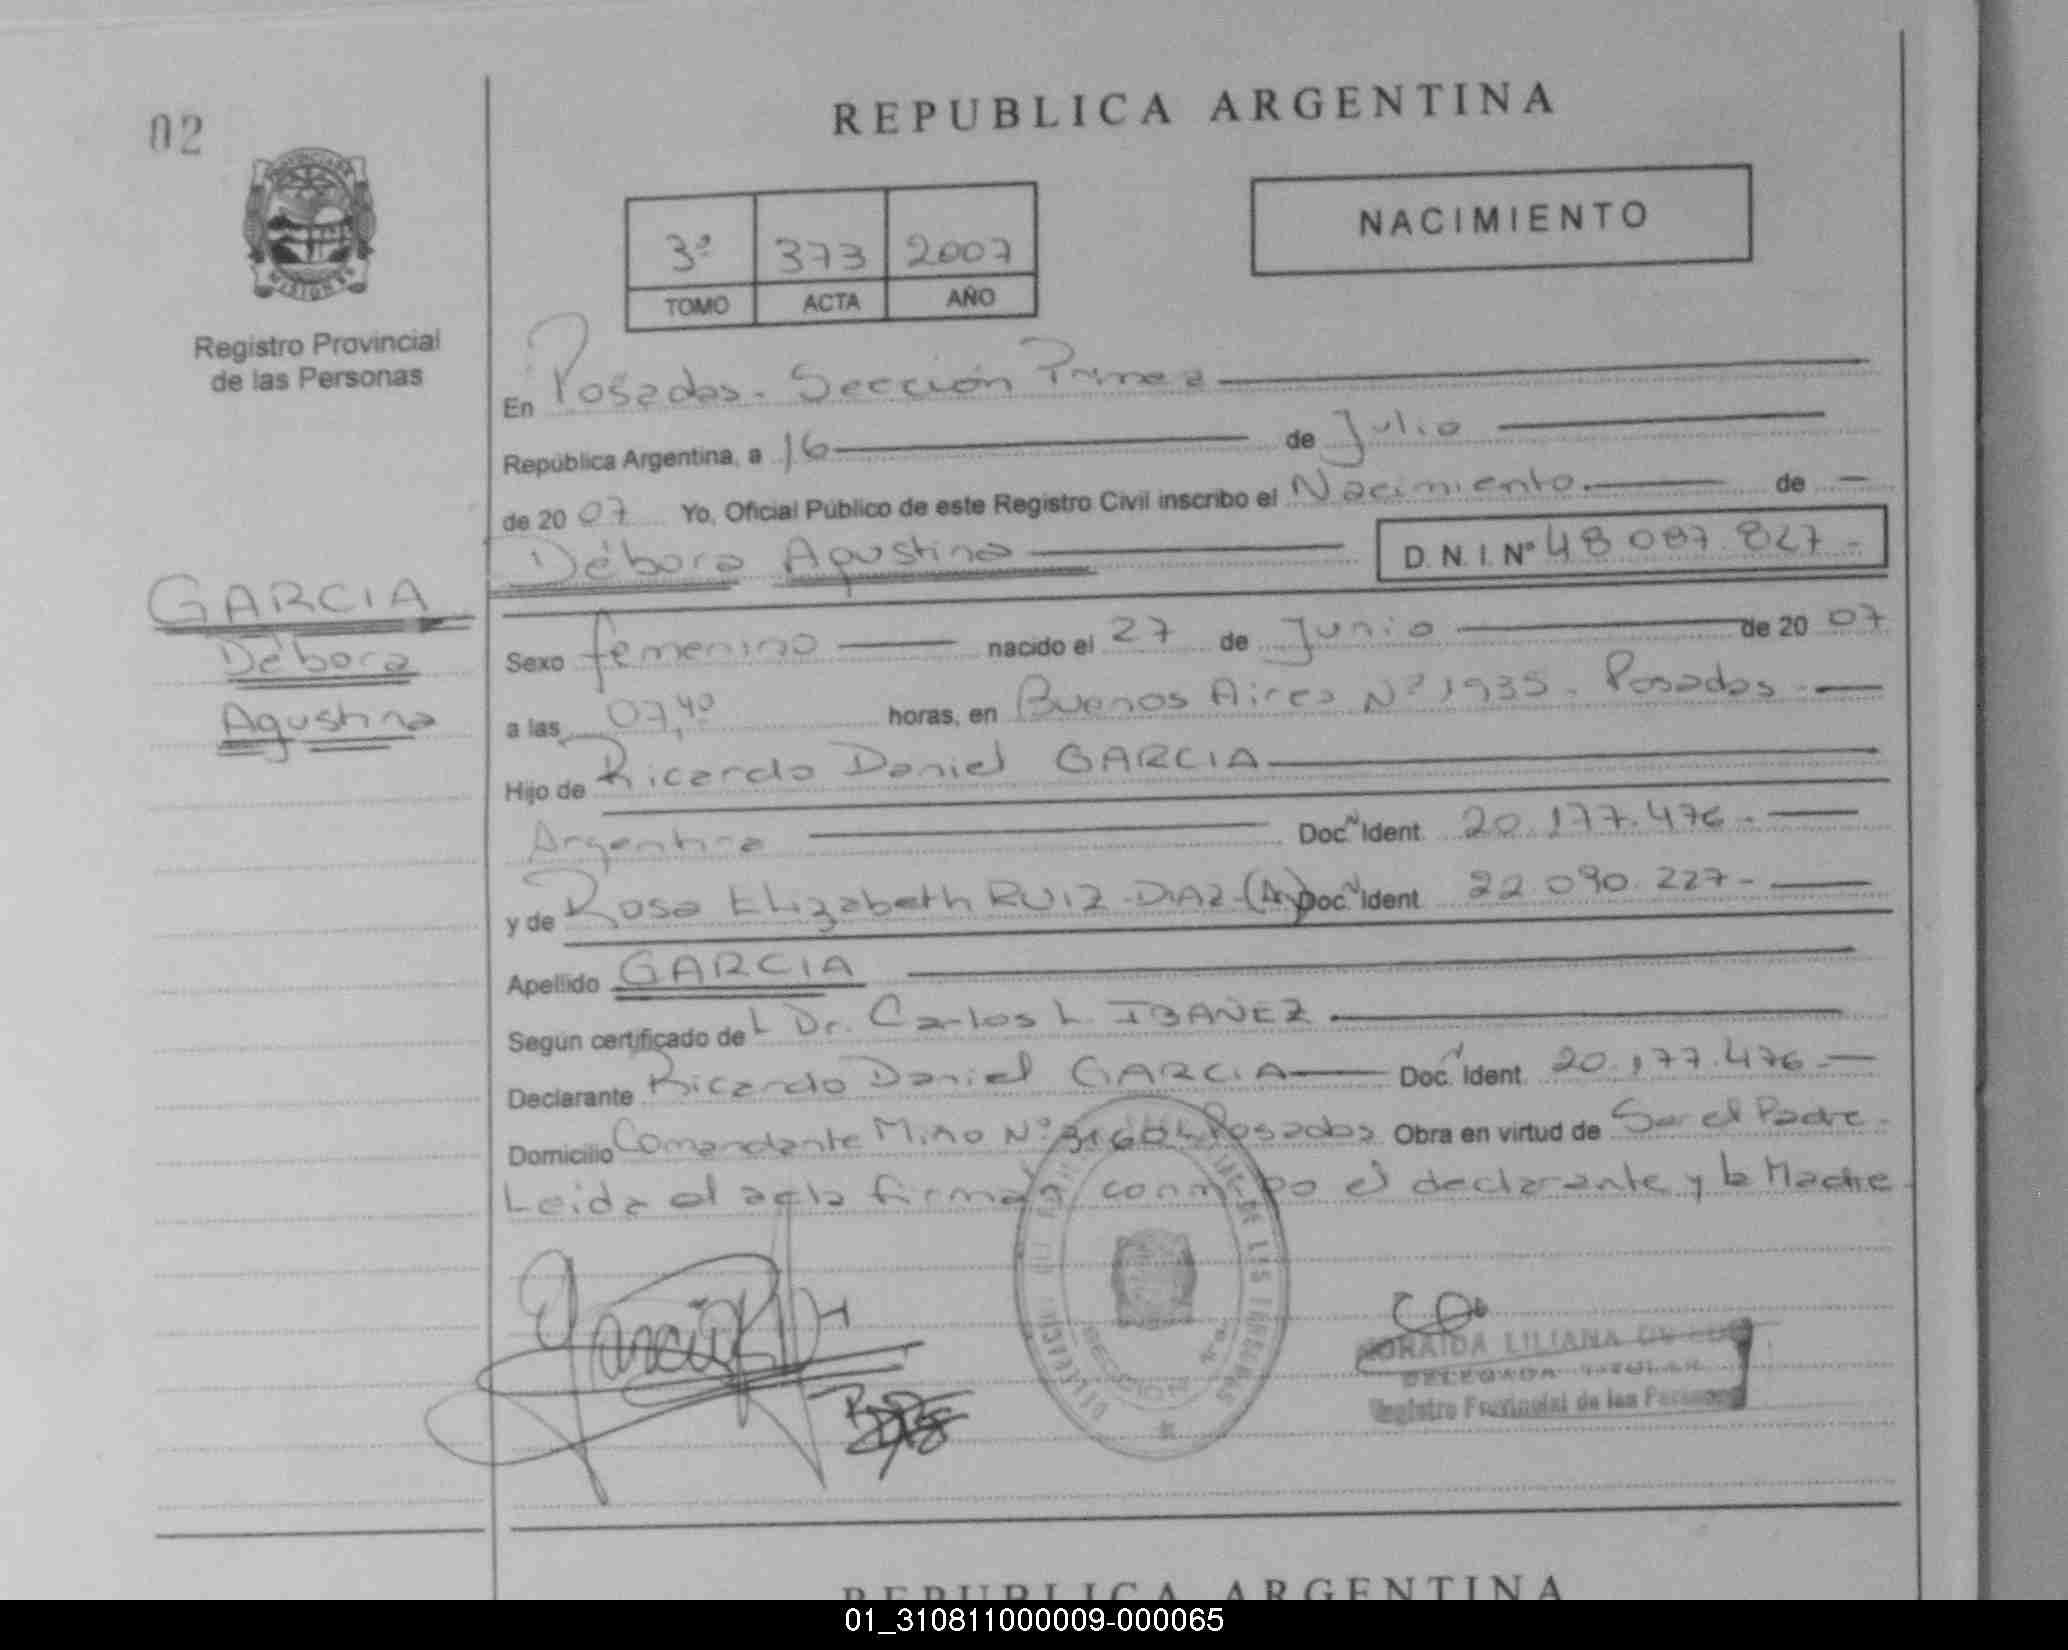 02
REPUBLICA ARGENTINA
NACIMIENTO
3º 373 2007
TOMO ACTA AÑO
MISIONES
Registro Provincial
de las Personas
En Posadas. Sección Primera
República Argentina, a 16 de Julio
de 2007 Yo, Oficial Público de este Registro Civil inscribo el Nacimiento. de
Débora Agustina D. N. I. Nº 48 087 827 -
GARCIA
Débora
Agustina
Sexo femenino nacido el 27 de Junio de 2007
a las 07,40 horas, en Buenos Aires Nº 1935. Posadas
Hijo de Ricardo Daniel GARCIA
Argentina Doc. N Ident. 20.177.476 -
y de Rosa Elizabeth RUIZ-DIAZ-(Ar) Doc. N Ident. 22.090.227 -
Apellido GARCIA
Según certificado de L Dr. Carlos L. IBAÑEZ
Declarante Ricardo Daniel GARCIA Doc. N Ident. 20.177.476 -
Domicilio Comandante Miño Nº Posadas Obra en virtud de Ser el Padre.
Leida el acta firman conmigo el declarante y la Madre
SECCION 1ra
ZORAIDA LILIANA
DELEGADA TITULAR
Registro Provincial de las Personas
REPUBLICA ARGENTINA
01_310811000009-000065